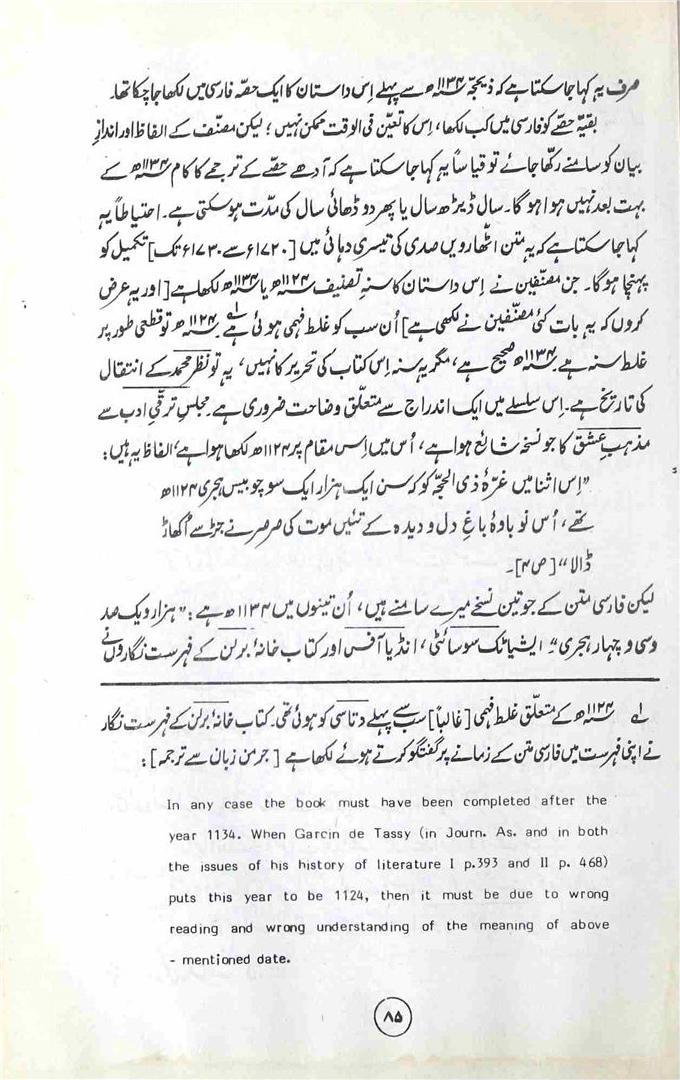 صرف یہ کہا جا سکتا ہے کہ ذیحجہ ۱۱۳۴ھ سے پہلے اِس داستان کا ایک حصہ فارسی میں لکھا جا چکا تھا۔
بقیہ حصّے کو فارسی میں کب لکھا، اِس کا تعیّن فی الوقت ممکن نہیں؛ لیکن مصنّف کے الفاظ اور اندازِ
بیان کو سامنے رکھّا جائے تو قیاساً یہ کہا جا سکتا ہے کہ آدھے حصّے کے ترجمے کا کام ۱۱۳۴ھ کے
بہت بعد نہیں ہوا ہوگا۔ سال ڈیڑھ سال یا پھر دو ڈھائی سال کی مدّت ہو سکتی ہے۔ احتیاطاً یہ
کہا جا سکتا ہے کہ یہ متن اٹھارویں صدی کی تیسری دہائی میں [۱۷۲۰ء سے ۱۷۳۰ء تک] تکمیل کو
پہنچا ہوگا۔ جن مصنّفین نے اِس داستان کا سنہِ تصنیف ۱۱۲۴ھ یا ۱۱۳۴ھ لکھا ہے [اور یہ عرض
کروں کہ یہ بات کئی مصنّفین نے لکھی ہے] اُن سب کو غلط فہمی ہوئی ہے۔ ۱؎ ۱۱۲۴ھ تو قطعی طور پر
غلط سنہ ہے ۱۱۳۴ھ صحیح ہے، مگر یہ سنہ اِس کتاب کی تحریر کا نہیں، یہ تو نظر محمد کے انتقال
کی تاریخ ہے۔ اِس سلسلے میں ایک اندراج سے متعلّق وضاحت ضروری ہے۔ مجلسِ ترقّیِ ادب سے
مذہبِ عشق کا جو نسخہ شائع ہوا ہے، اُس میں اِس مقام پر ۱۱۲۴ھ لکھا ہوا ہے، الفاظ یہ ہیں:
”اِس اثنا میں غرّۂ ذی الحجّہ کو کہ سن ایک ہزار ایک سو چوبیس ہجری ۱۱۲۴ھ
تھے، اُس نوباوۂ باغِ دل و دیدہ کے تئیں موت کی صرصر نے جڑ سے اُکھاڑ
ڈالا“ [ص ۴]۔
لیکن فارسی متن کے جو تین نسخے میرے سامنے ہیں، اُن تینوں میں ۱۱۳۴ھ ہے: ”ہزار و یک صد
و سی و چہار ہجری“۔ ایشیاٹک سوسائٹی، انڈیا آفس اور کتاب خانۂ برلن کے فہرست نگاروں نے
۱؎ ۱۱۲۴ھ کے متعلّق غلط فہمی [غالباً] سب سے پہلے دتاسی کو ہوئی تھی۔ کتاب خانۂ برلن کے فہرست نگار
نے اپنی فہرست میں فارسی متن کے زمانے پر گفتگو کرتے ہوئے لکھا ہے [جرمن زبان سے ترجمہ]:
In any case the book must have been completed after the
year 1134. When Garcin de Tassy (in Journ. As. and in both
the issues of his history of literature I p.393 and II p. 468)
puts this year to be 1124, then it must be due to wrong
reading and wrong understanding of the meaning of above
- mentioned date.
۸۵